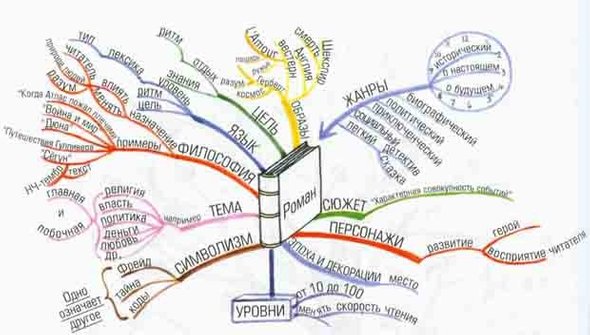 Роман
ЖАНРЫ
исторический
о настоящем
о будущем
биографический
политический
приключенческий
социальный
легкий
детектив
сказка
СЮЖЕТ
"Характерная совокупность событий"
ПЕРСОНАЖИ
развитие
герой
восприятие читателя
ЭПОХА И ДЕКОРАЦИИ
место
УРОВНИ
от 10 до 100
менять скорость чтения
СИМВОЛИЗМ
Фрейд
тайна
коды
Одно
означает
другое
ТЕМА
например
религия
власть
политика
деньги
любовь
др.
главная
и
побочная
ФИЛОСОФИЯ
назначение
влиять
менять
читатель
разум
примеры
"Когда Атлас пожал плечами"
"Война и мир"
"Дюна"
"Путешествия Гулливера"
"Сёгун"
текст
ЯЗЫК
уровень
лексика
тип
ритм
цель
ЦЕЛЬ
знания
отдых
ритм
ОБРАЗЫ
Герберт
разум
космос
L'Amour
вестерн
Англия
смерть
Шекспир